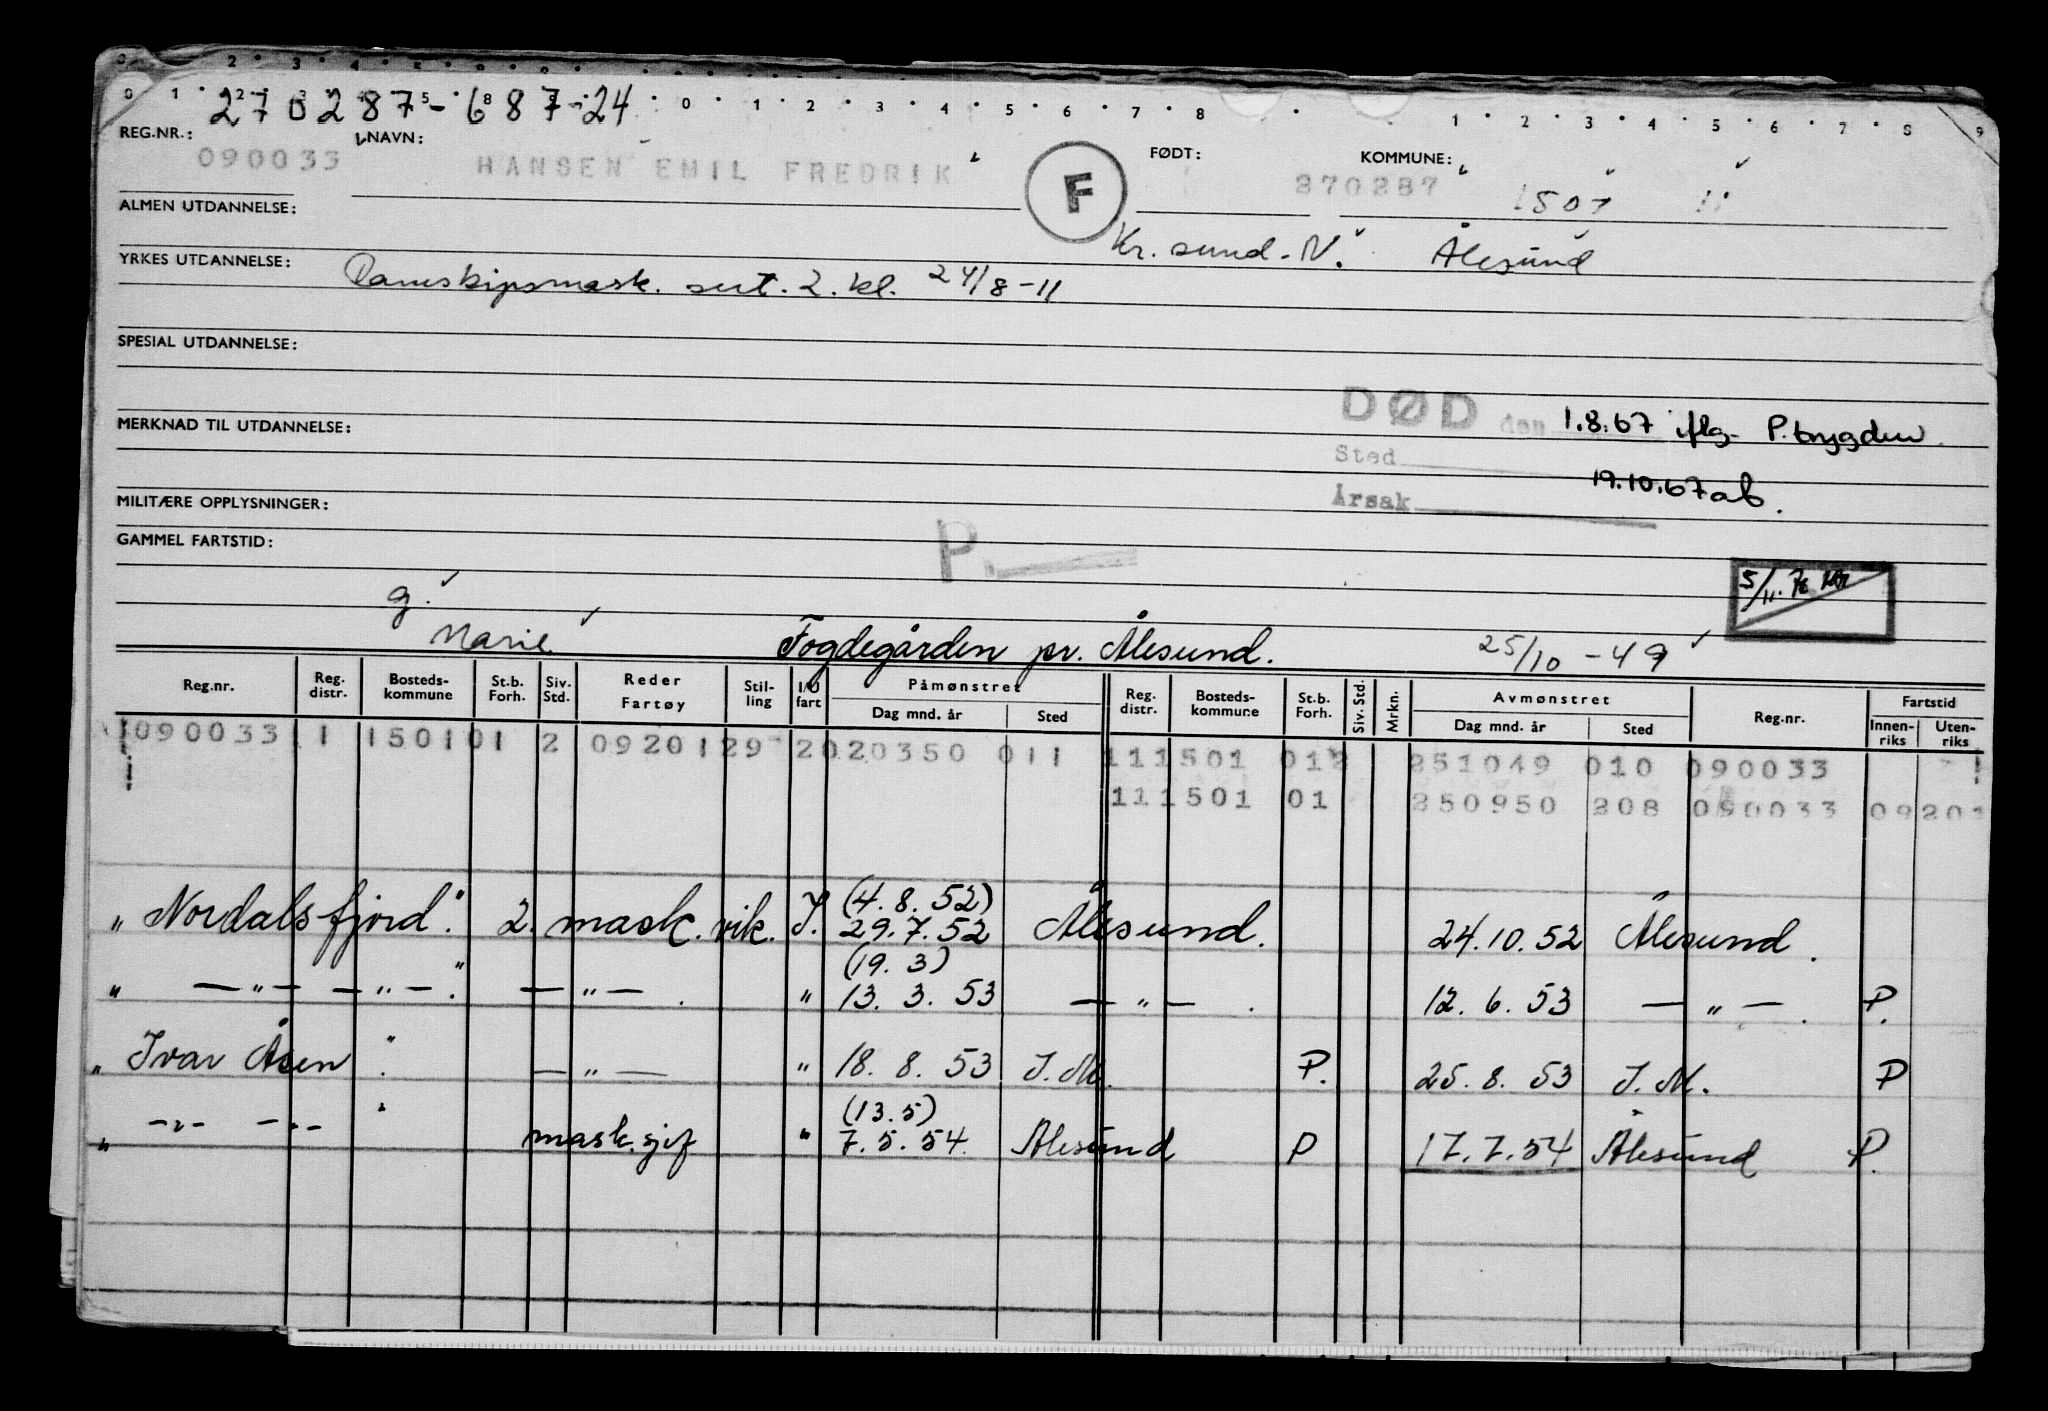 270287-687-24
REG.NR.: NAVN: FØDT: KOMMUNE:
090033 HANSEN EMIL FREDRIK F 270287 1507 11
ALMEN UTDANNELSE:
Kr. sund. N. Ålesund
YRKES UTDANNELSE: Dampskipsmask. sert. 2. kl. 24/8-11
SPESIAL UTDANNELSE:
DØD den 1.8.67 iflg. P.trygden
MERKNAD TIL UTDANNELSE:
Sted
19.10.67 ab.
Årsak
MILITÆRE OPPLYSNINGER:
P.
GAMMEL FARTSTID:
5/11.
g.
Marie Fogdegården pr. Ålesund. 25/10-49
Reg.nr. Reg. distr. Bosteds-kommune St.b. Forh. Siv. Std. Reder Fartøy Stil-ling I/U fart Påmønstret Dag mnd. år Sted Reg. distr. Bosteds-kommune St.b. Forh. Siv. Std. Mrkn. Avmønstret Dag mnd. år Sted Reg.nr. Fartstid Innen-riks Uten-riks
090033 1 150101 2 09201 29 20 20350 011 111501 012 251049 010 090033
111501 01 250950 208 090033 09201
"Nordalsfjord". 2. mask. vik. I. (4.8.52) 29.7.52 Ålesund. 24.10.52 Ålesund.
" — " — — " — ." — " — . " (19.3) 13.3.53 — " — . 12.6.53 — " — . P.
"Ivar Åsen". — " — " 18.8.53 I.M. P. 25.8.53 I.M. P
" — " — — " — " mask.sjef " (13.5) 7.5.54. Ålesund P 17.7.54 Ålesund P.